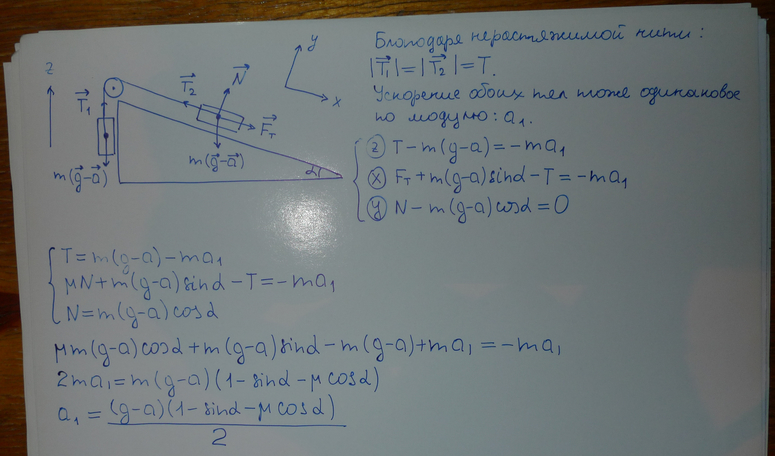 Благодаря нерастяжимой нити:
|T₁|=|T₂|=T.
Ускорение обоих тел тоже одинаковое
по модулю: a₁.
z
y
x
T₁
T₂
N
Fт
m(g-a)
m(g-a)
α
{ (z) T-m(g-a)=-ma₁
(x) Fт+m(g-a)sinα-T=-ma₁
(y) N-m(g-a)cosα=0
{ T=m(g-a)-ma₁
μN+m(g-a)sinα-T=-ma₁
N=m(g-a)cosα
μm(g-a)cosα+m(g-a)sinα-m(g-a)+ma₁=-ma₁
2ma₁=m(g-a)(1-sinα-μcosα)
a₁=(g-a)(1-sinα-μcosα)
2